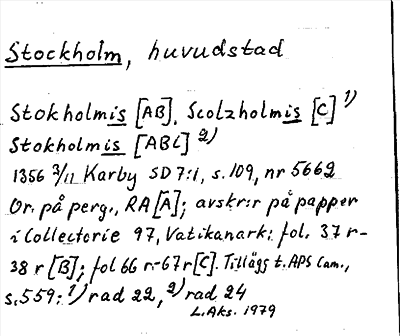 Stockholm, huvudstad
Stokholmis [AB], Scolzholmis [C] 1)
Stokholmis [ABC] 2)
1356 2/11 Karby SD 7:1, s. 109, nr 5662
Or. på perg., RA [A]; avskr:r på papper
i Collectorie 97, Vatikanark: fol. 37 r-
38 r [B]; fol 66 r-67 r [C]. Tillägg t. APS Cam.,
s. 559: 1) rad 22, 2) rad 24
L. Aks. 1979